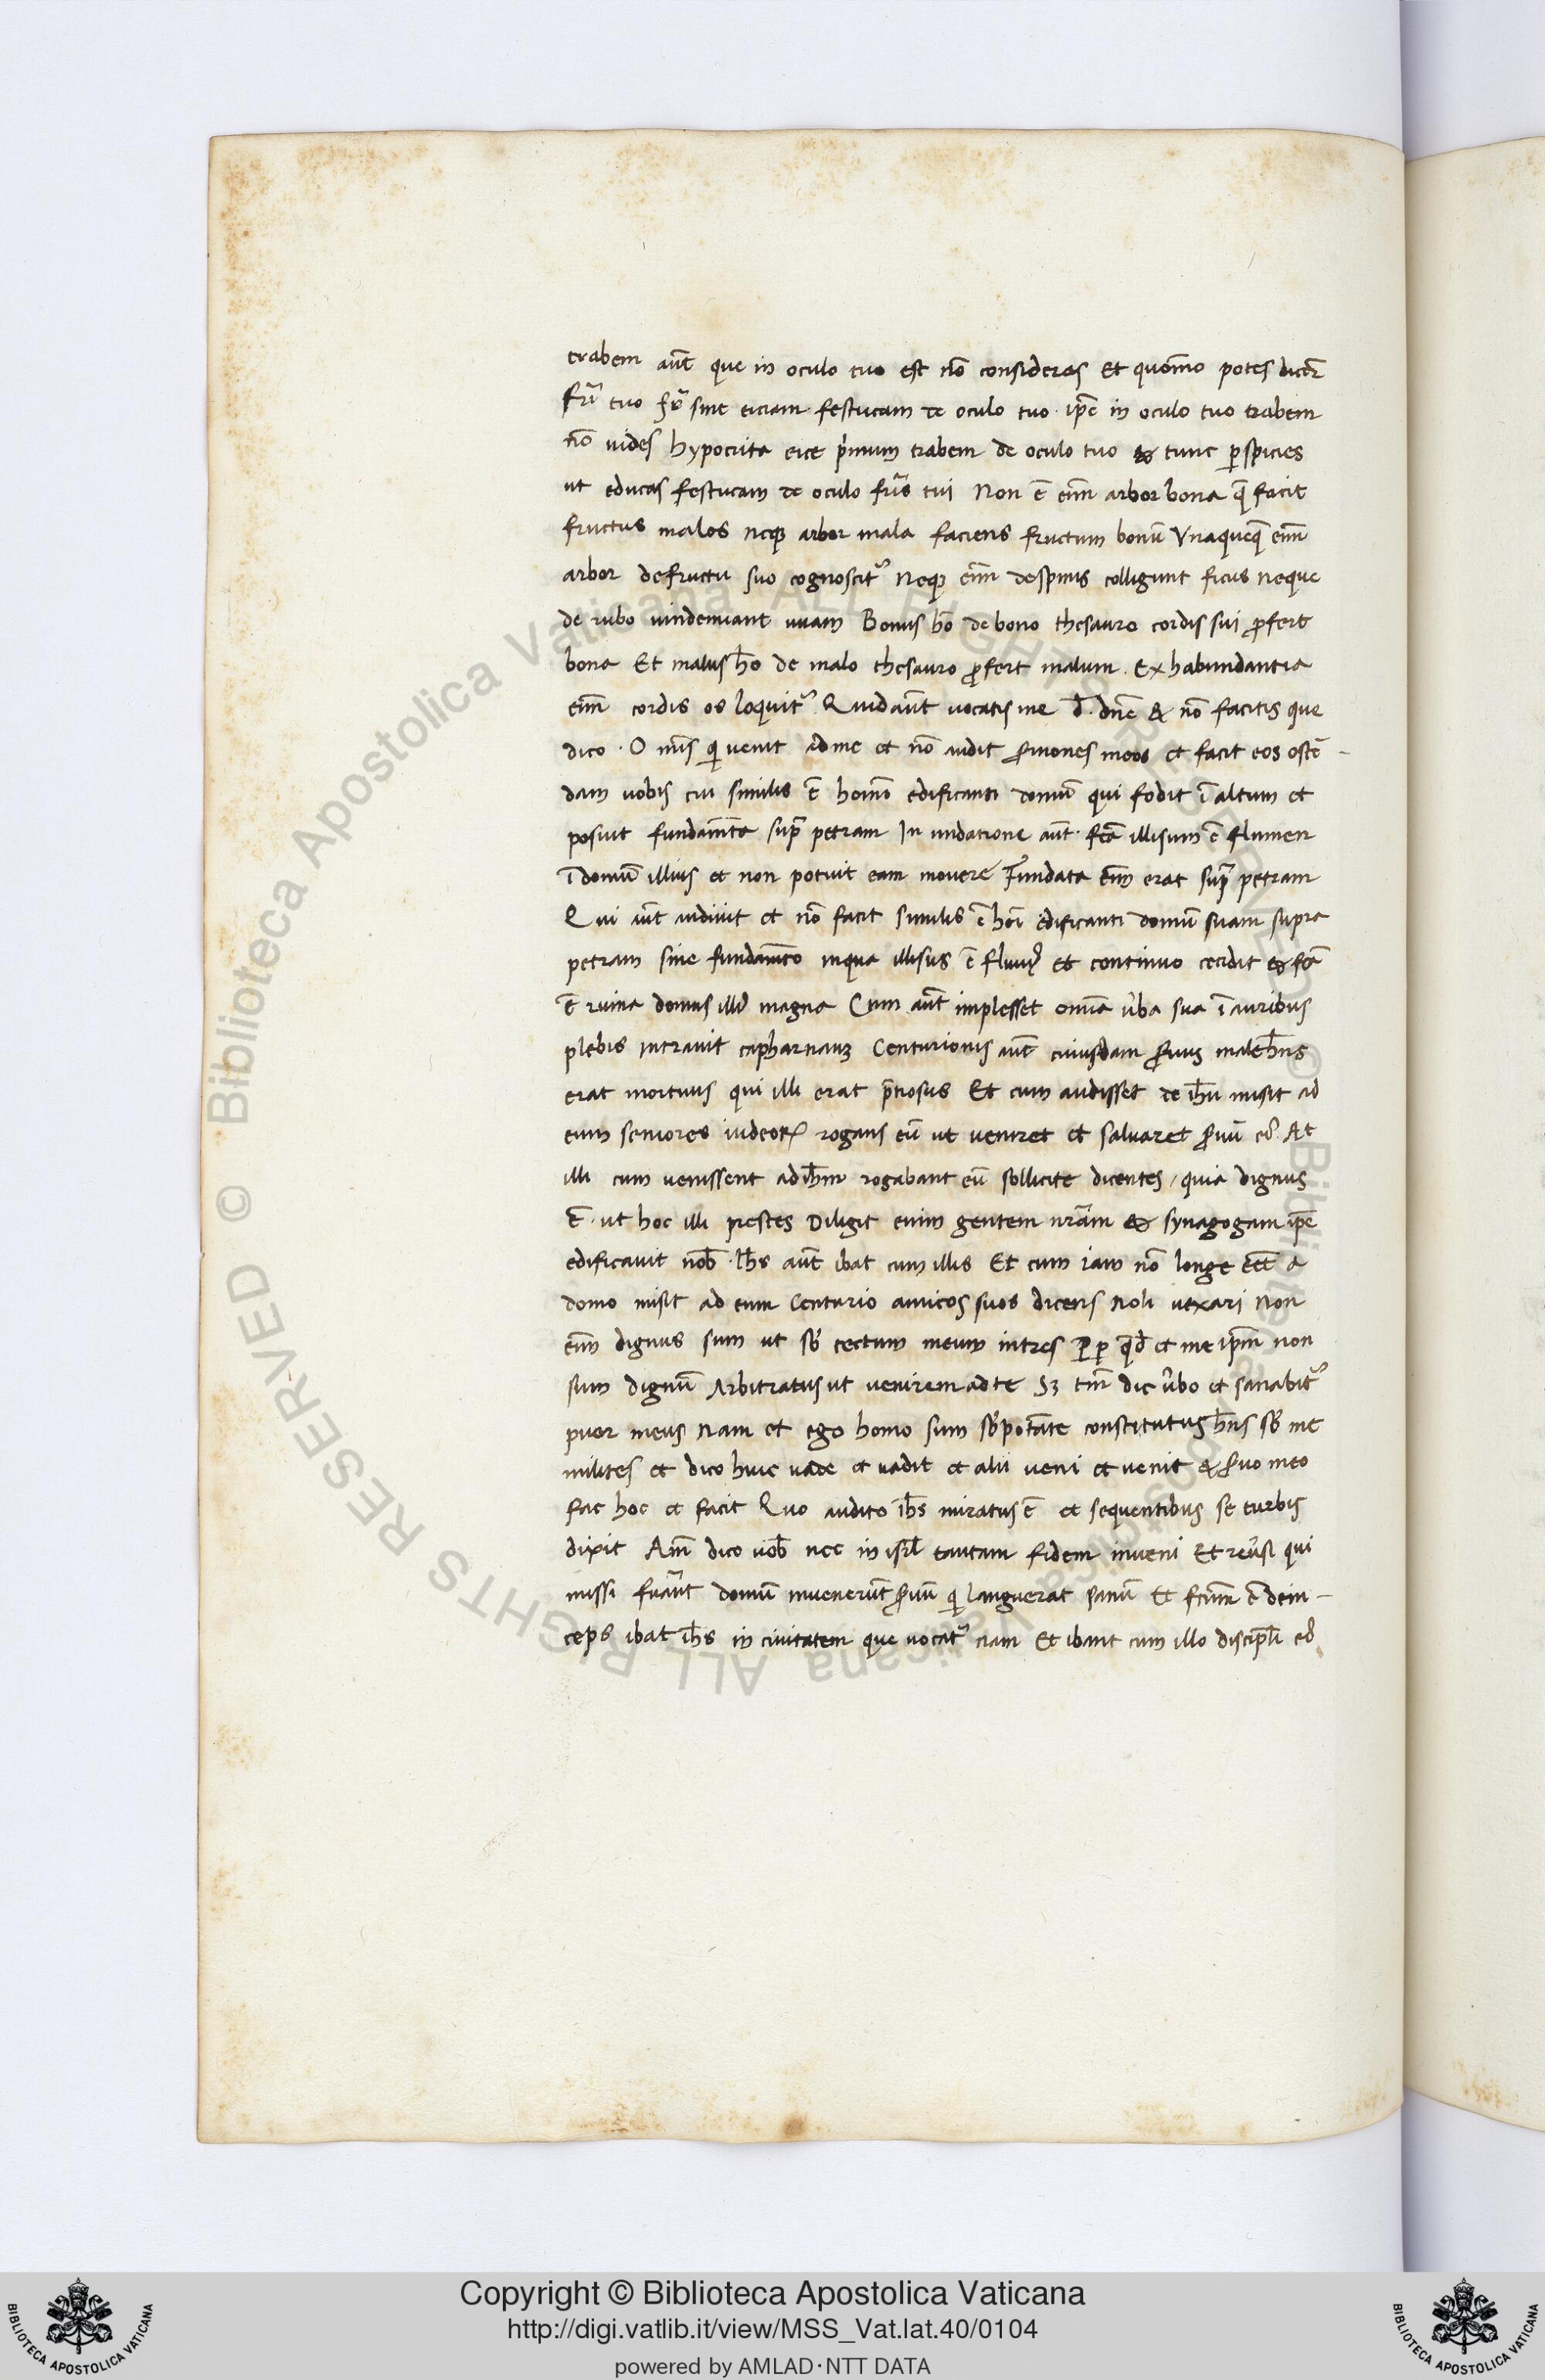 trabem aūt que in oculo tuo est nō consideras Et quomō potes dicēr
frī tuo fr̄ sine eiciam festucam de oculo tuo ip̄e in oculo tuo trabem
nō uides hypocrita eice p̄mum trabem de oculo tuo & tunc ꝑspicies
ut educas festucam de oculo fr̄is tui Non ē enī arbor bona q̄ facit
fructus malos neqꝫ arbor mala faciens fructum bonū Vnaqueq̄ enī
arbor defructu suo cognoscit᷑ Neqꝫ enī despinis colligunt ficus neque
de rubo uindemiant uuam Bonus hō de bono thesauro cordis sui ꝓfert
bona Et malus hō de malo thesauro ꝓfert malum. Ex habundantia
enī cordis os loquit᷑ Quid aūt uocatis me d̄. dn̄e & nō facitis que
dico. O mīs q̄ uenit ad me et nō audit s̄mones meos et facit eos ostē-
dam uobis cui similis ē homō edificanti domū qui fodit ī altum et
posuit fundam̄ta sup̄ petram In undatione aūt. fcā illisum ē flumen
ī domū illius et non potuit eam mouere Fundata enī erat sup̄ petram
Qui aūt audiuit et nō facit similis ē hoī edificanti domū suam supra
petram sine fundam̄to inqua illisus ē fluuiꝰ et continuo cecidit & fcā
ē ruina domus illiꝰ magna Cum aūt implesset omīa ūba sua ī auribus
plebis intrauit capharnauꝫ Centurionis aūt cuiusdam s̄uus male hn̄s
erat mortuus qui illi erat p̄tiosus Et cum audisset de ihū misit ad
eum seniores iudeoꝝ rogans eū ut ueniret et saluaret s̄uū eꝰ At
illi cum uenissent ad ihm̄ rogabant eū sollicite dicentes / quia dignus
ē. ut hoc illi prestes Diligit enim gentem nr̄am & synagogam ip̄e
edificauit nob̄. Ihs̄ aūt ibat cum illis Et cum iam nō longe eēt a
domo misit ad eum Centurio amicos suos dicens Noli uexari Non
enī dignus sum ut sb̄ tectum meum intres ꝓp q̄d et me ip̄m non
sum dignū Arbitratus ut uenirem ad te Sꝫ tm̄ dic ūbo et sanabit᷑
puer meus Nam et ego homo sum sb̄ potāte constitutus hn̄s sb̄ me
milites et dico huic uade et uadit et alii ueni et uenit & s̄uo meo
fac hoc et facit Quo audito ihs̄ miratus ē et sequentibus se turbis
dixit Am̄ dico uob̄ nec in isrl̄ tantam fidem inueni Et reūsi qui
missi fuāut domū inuenerūt s̄uū q̄ languerat sanū Et fcūm ē dein-
ceps ibat ihs̄ in ciuitatem que uocat᷑ naam Et ibant cum illo discipl̄i eꝰ
Copyright © Biblioteca Apostolica Vaticana
http://digi.vatlib.it/view/MSS_Vat.lat.40/0104
powered by AMLAD·NTT DATA
BIBLIOTECA APOSTOLICA VATICANA
BIBLIOTECA APOSTOLICA VATICANA
© Biblioteca Apostolica Vaticana ALL RIGHTS RESERVED
© Biblioteca Apostolica Vaticana ALL RIGHTS RESERVED